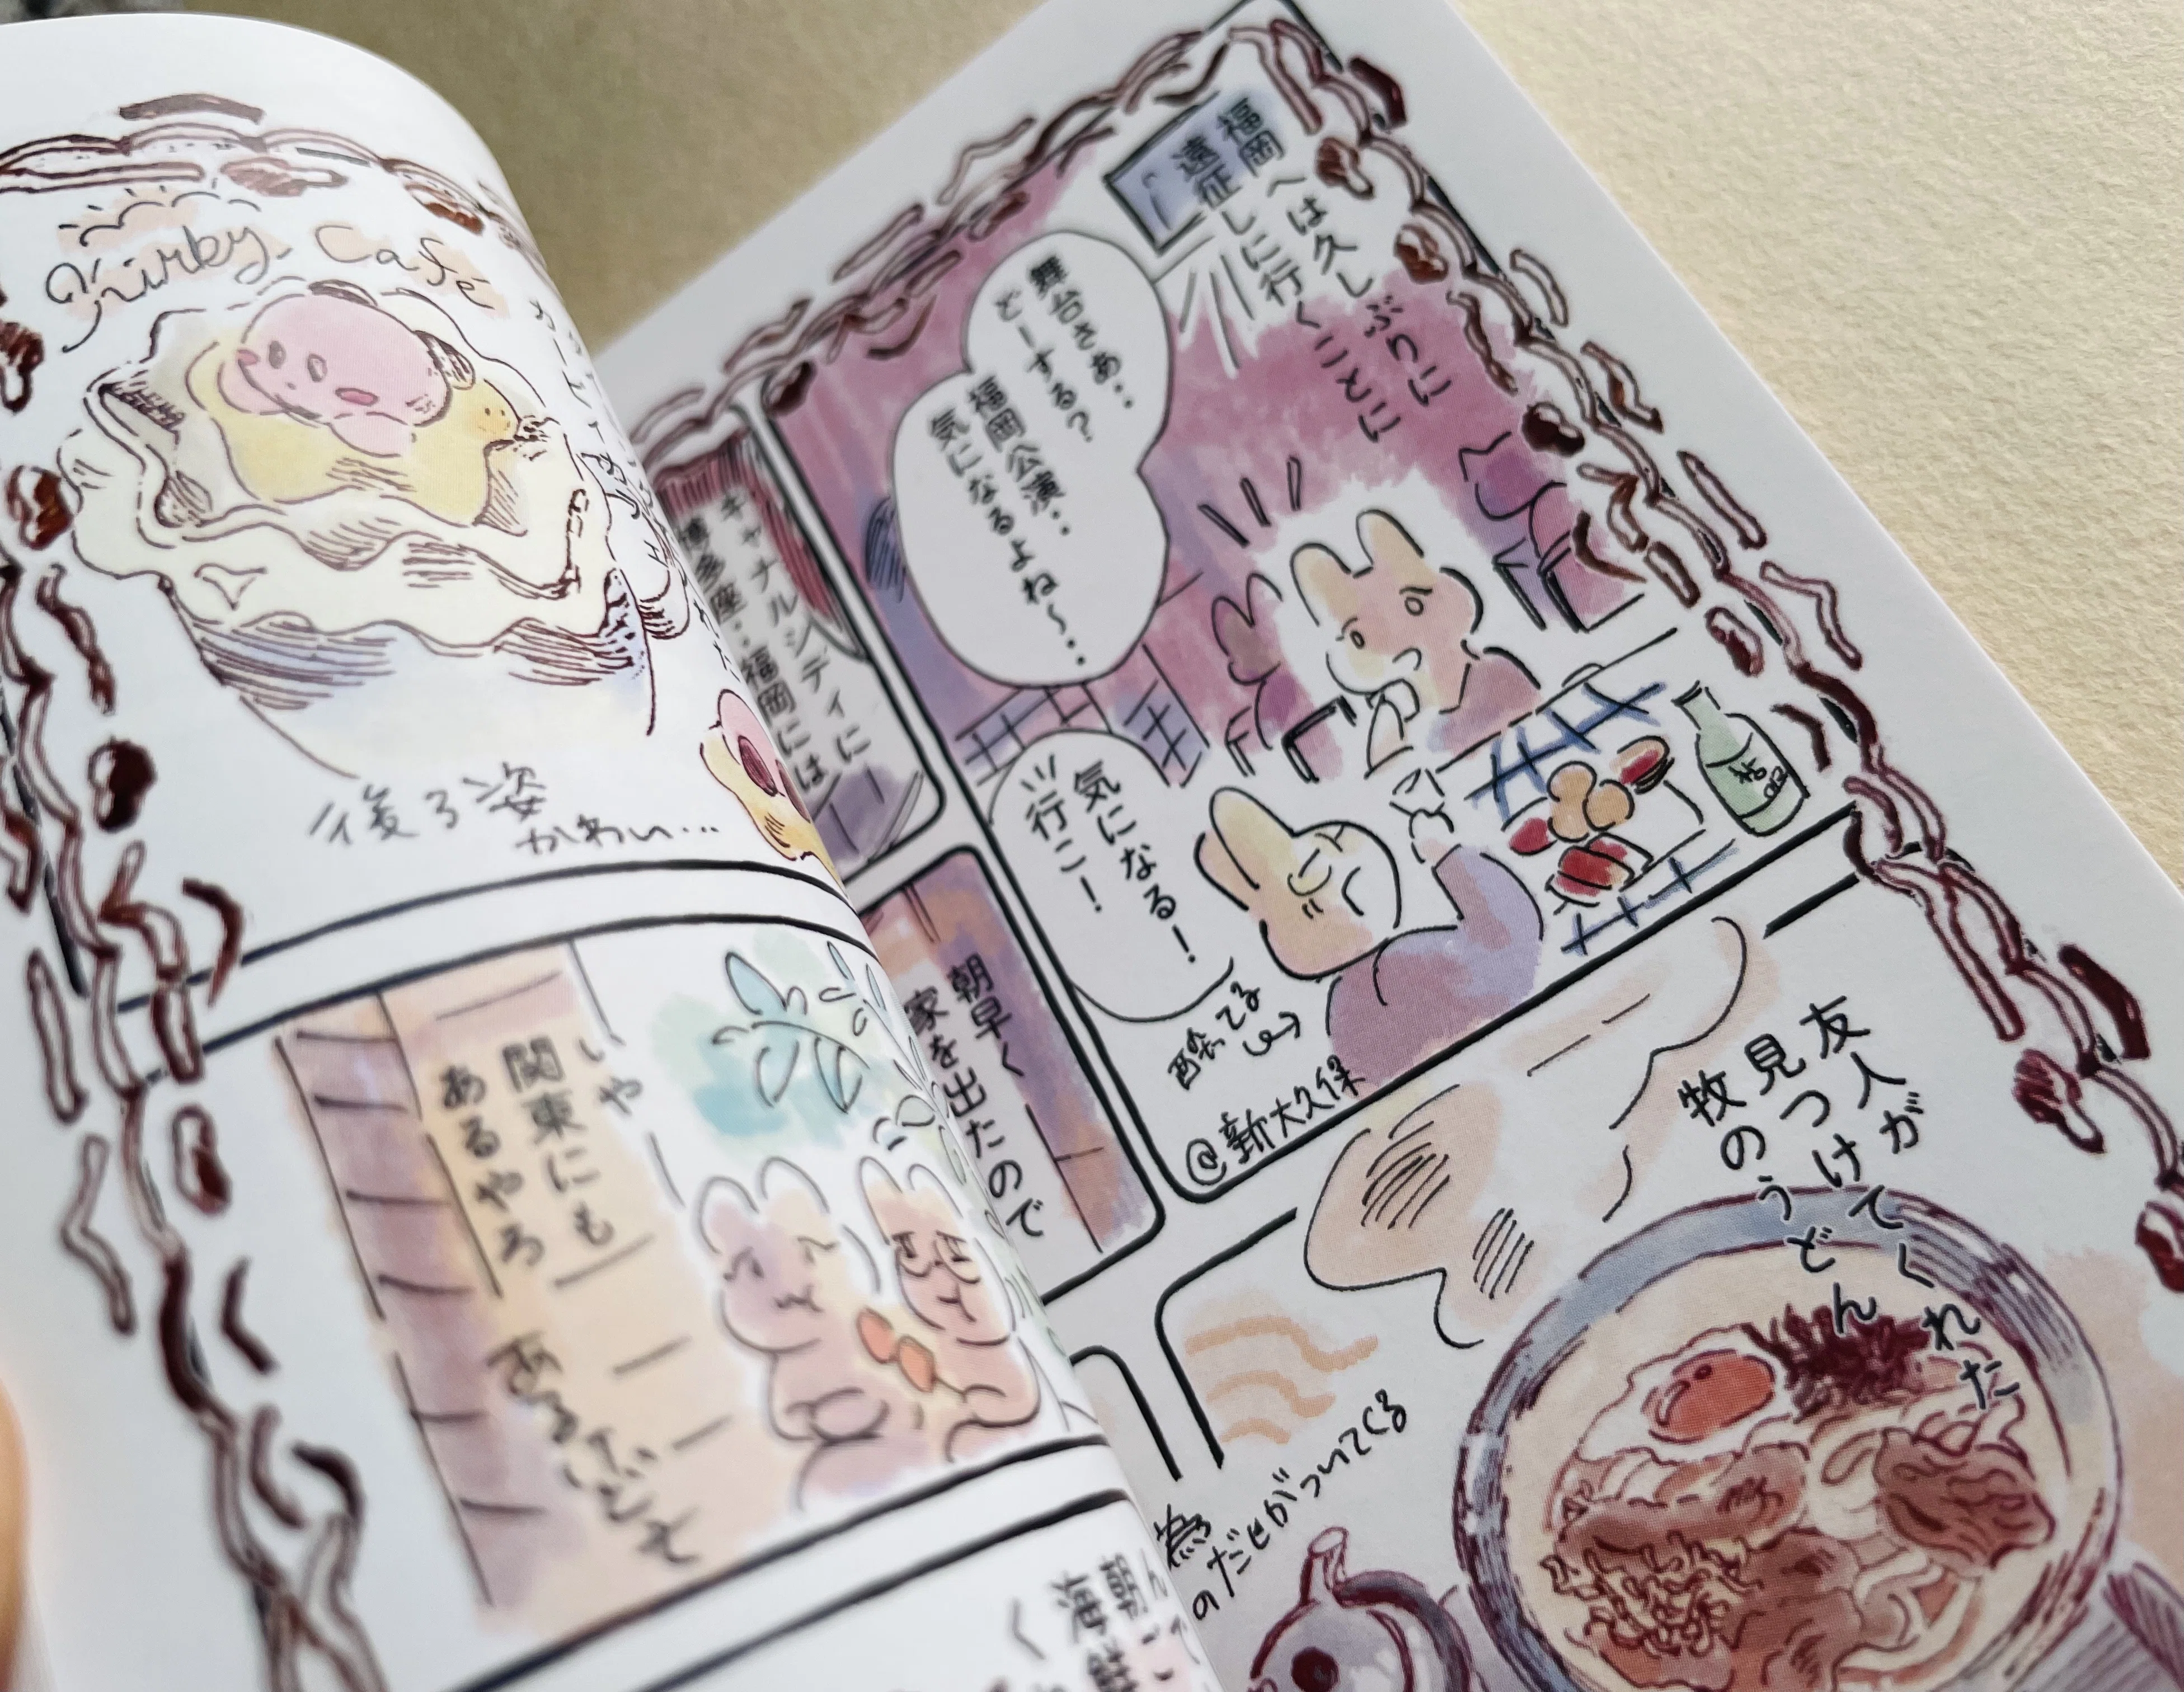 福岡へは久しぶりに
遠征しに行くことに
舞台さぁ‥
どーする?
福岡公演‥
気になるよね〜‥
気になる!
行こ!
酔ってる
@新大久保
キャナルシティに
博多座‥福岡には
朝早く
家を出たので
友人が
見つけてくれた
牧のうどん
為
のだせがついてくる
Kirby Cafe
後ろ姿
かわい…
いや
関東にも
あるやろ